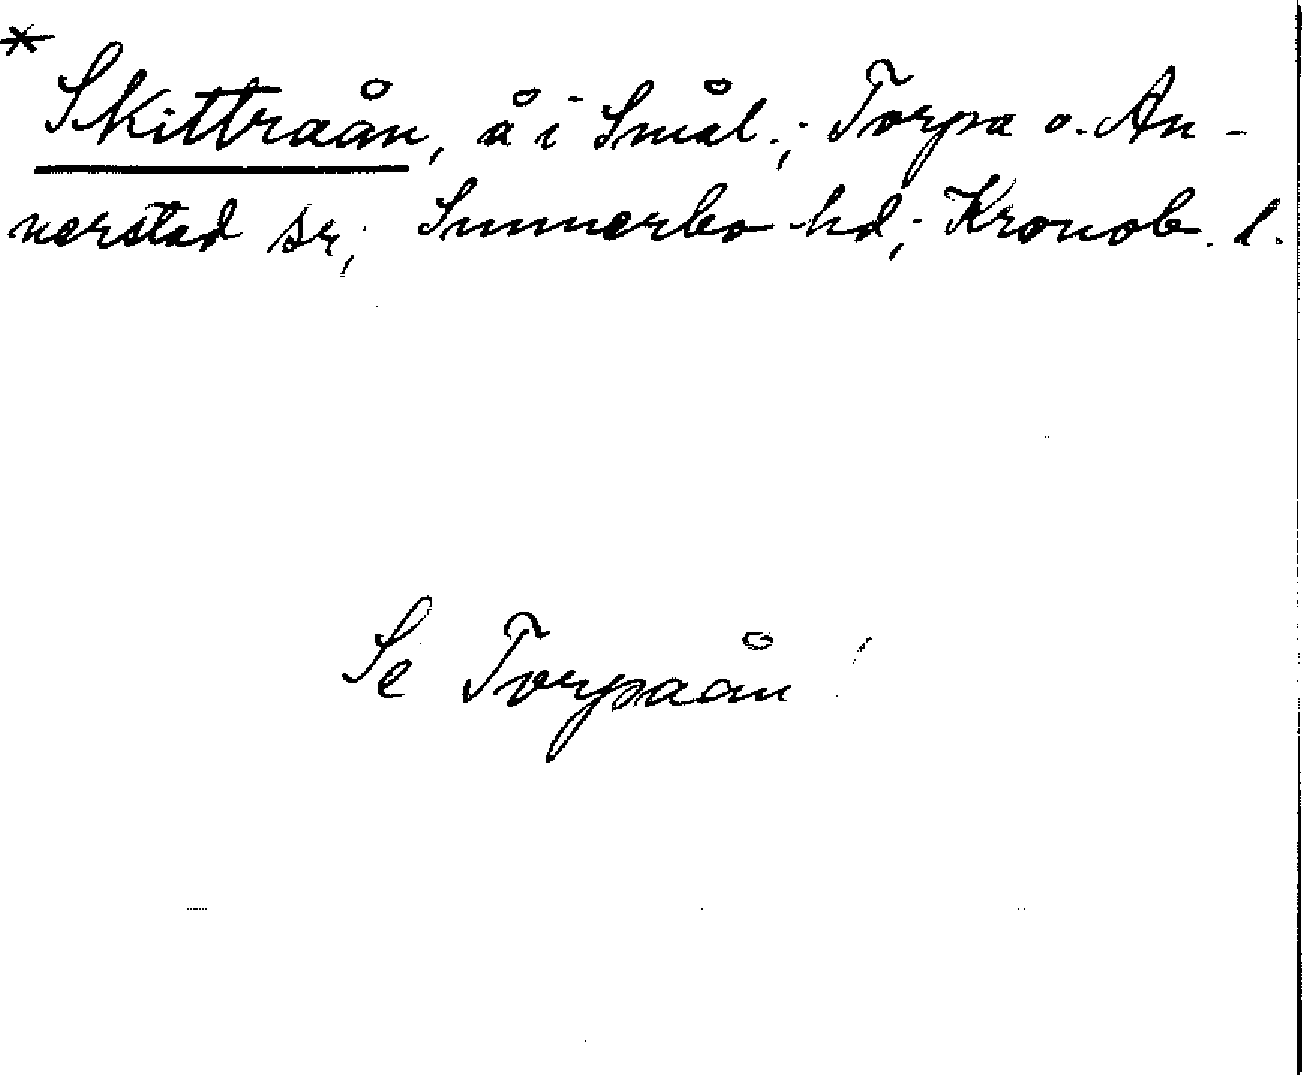 *
Skitträån, å i Smål.; Torpa o. An-
nerstad sr; Sunnerbo hd; Kronob. l.
Se Torpaån!